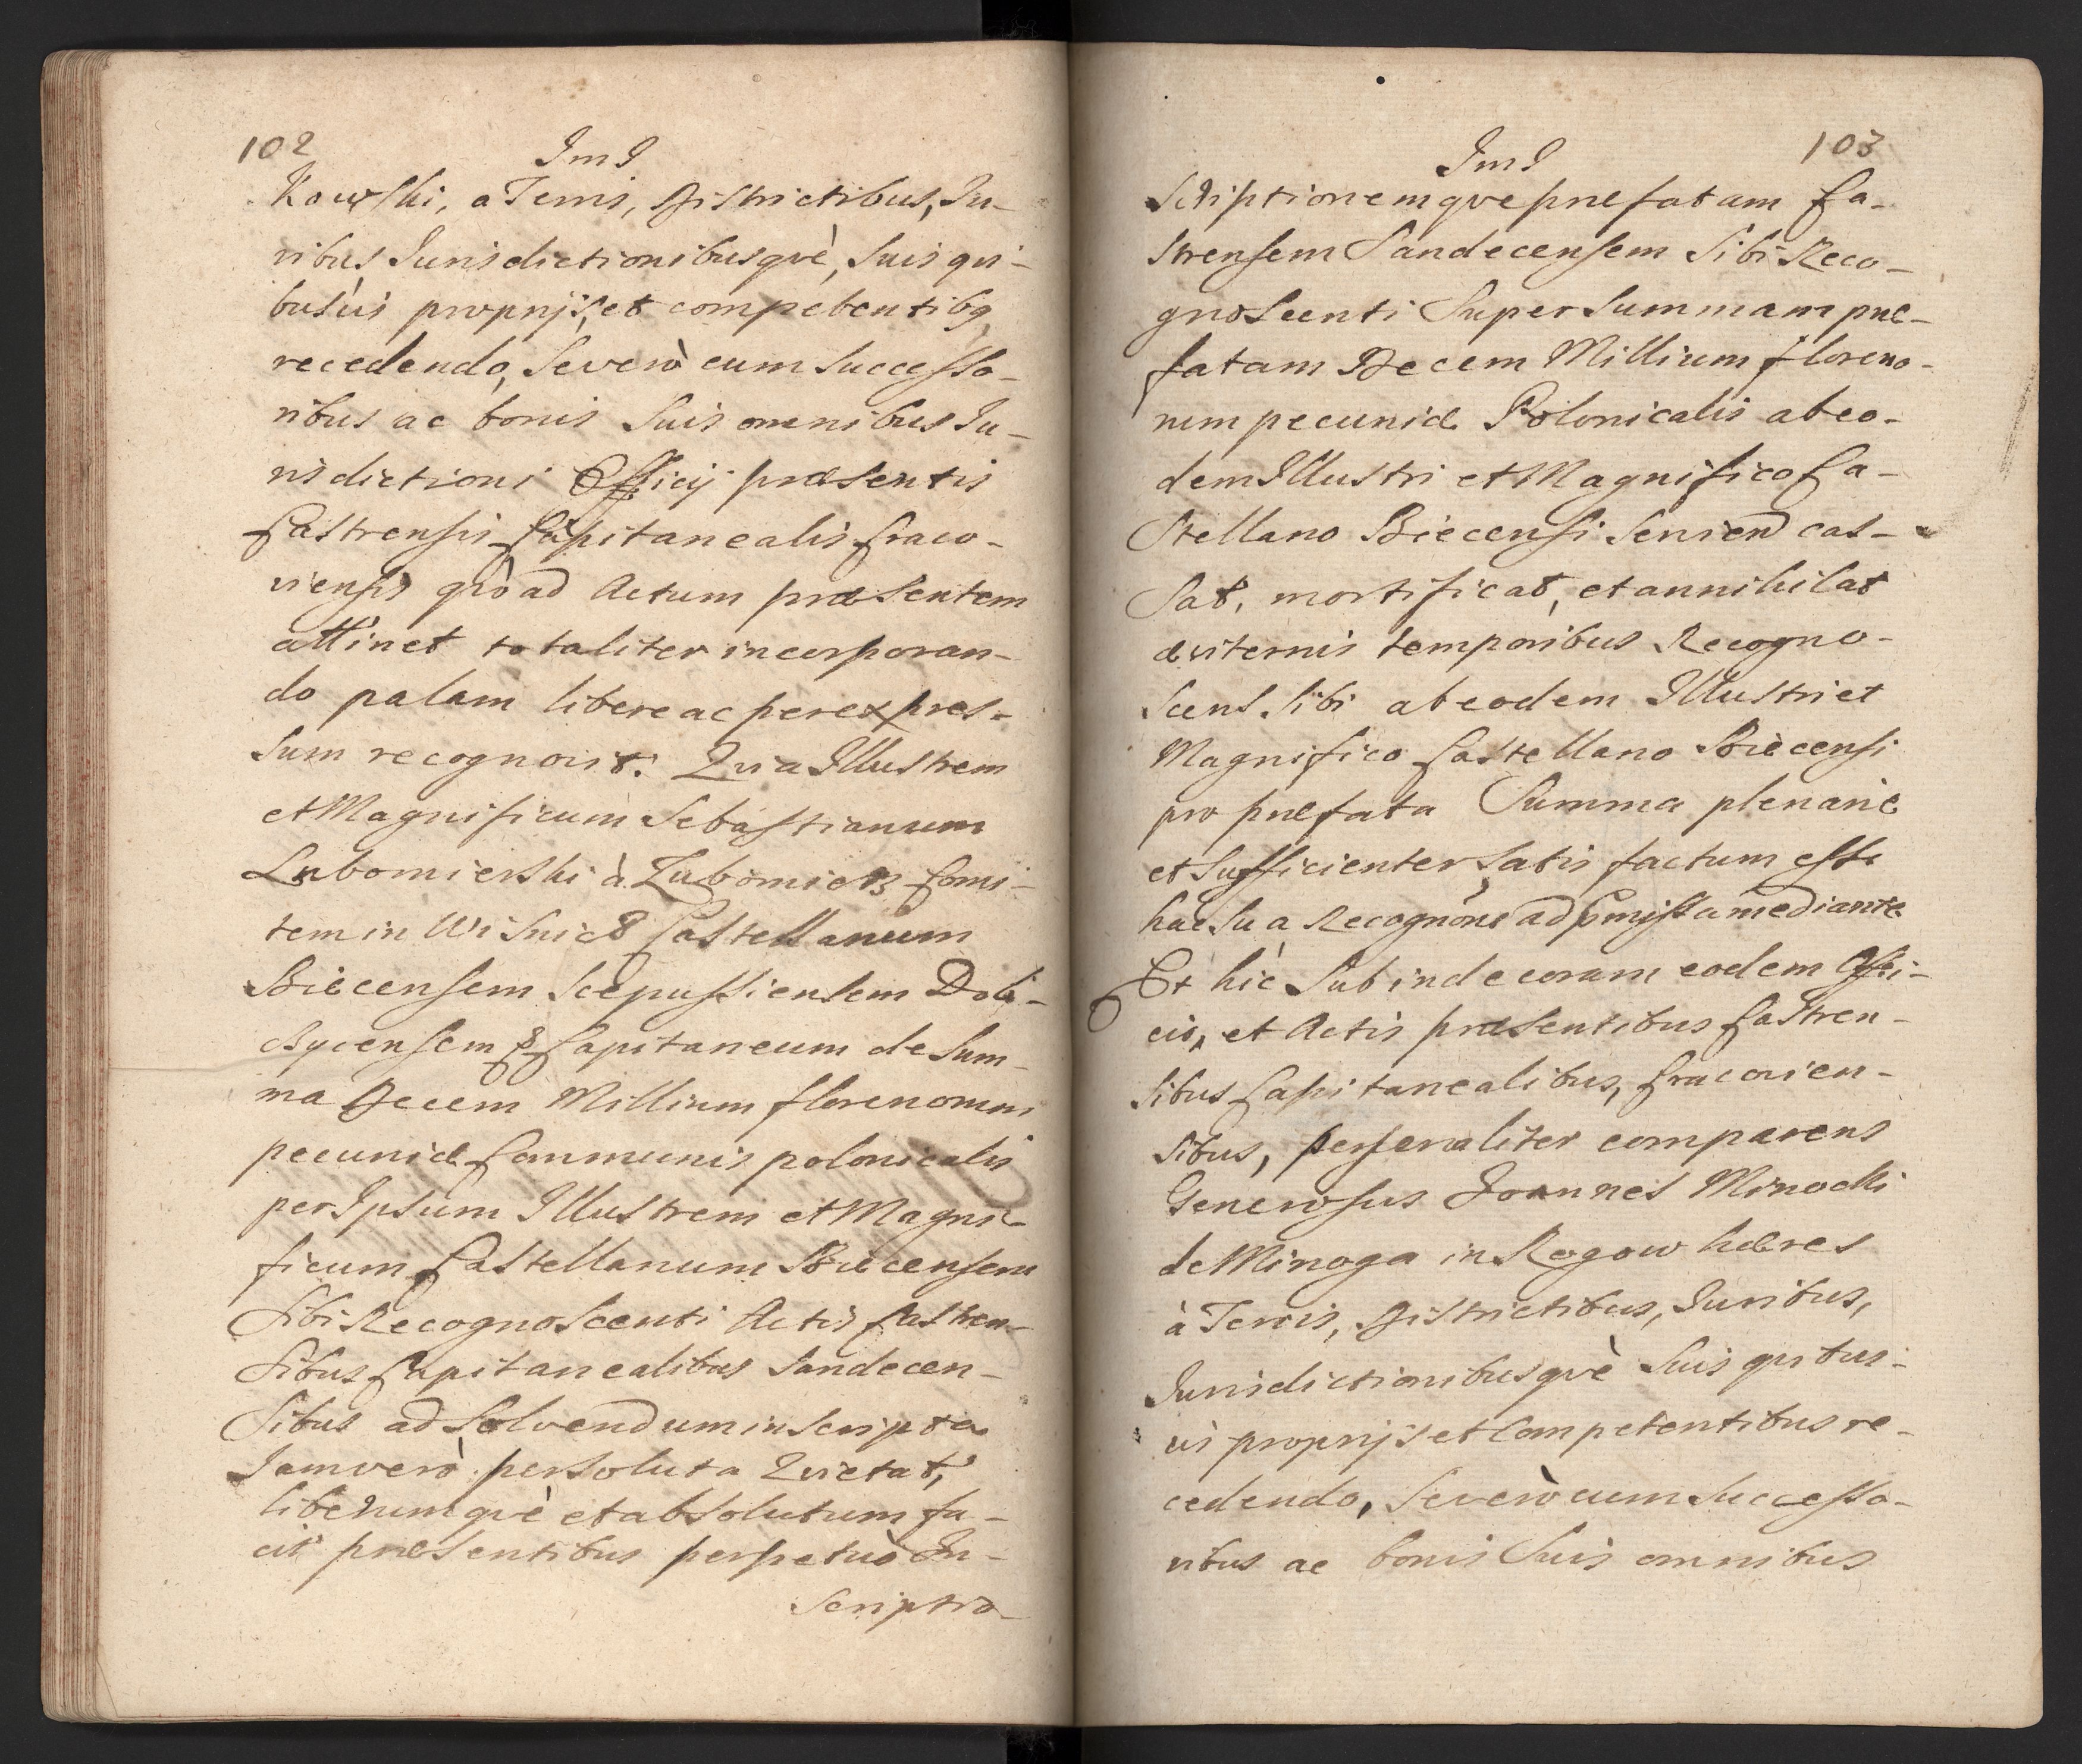 102
ImI
Kowski, a Terris, Districtibus, Iu-
ribus Iurisdictionibusqvè, Suis qvi-
busuis proprijs, et competentibq
recedendo, Severò cum Successo-
ribus ac bonis Suis omnibus Iu-
risdictioni Officij præsentis
Castrensis Capitanealis Craco-
viensis qvò ad Actum præsentem
attinet totaliter incorporan-
do palam libere ac per expres-
sum recognovit. Qvia Illustrem
et Magnificum Sebastianum
Lubomierski à Lubomierz Comi-
tem in Wisnicz Castellanum
Biecensem Scepussiensem Dob-
czycensem & Capitaneum de Sum-
ma Decem Millium florenorum
pecuniæ Communis polonicalis
per Ipsum Illustrem et Magni-
ficum Castellanum Biecensem
Sibi Recognoscenti Actis Castren-
sibus Capitanealibus Sandecen-
sibus ad Solvendum inscripta
Iamverò persoluta Qvietat,
liberumqvè et absolutum fa-
cit præsentibus perpetuò In-
scriptio-
ImI
103
Scriptionemqve præfatam Ca-
strensem Sandecensem Sibi Reco-
gnoscenti Super Summam præ-
fatam Decem Millium floreno-
rum pecuniæ Polonicalis ab eo-
dem Illustri et Magnifico Ca-
stellano Biecensi Serviend cas-
sat, mortificat, et annihilat
æviternis temporibus Recogno-
scens Sibi ab eodem Illustri et
Magnifico Castellano Biecensi
pro præfata Summa plenariè
et Sufficienter Satis factum esse
hac Sua Recognõne ad pmissa mediante
Et hic Subinde coram eodem Offi-
cio, et Actis præsentibus Castren-
sibus Capitanealibus, Cracovien-
sibus, personaliter comparens
Generosus Joannes Minocki
de Minoga in Rogow hæres
à Terris, Districtibus, Iuribus,
Iurisdictionibusqvè Suis qvibus-
vis proprijs et Competentibus re-
cedendo, Severò cum Successo-
ribus ac bonis Suis omnibus